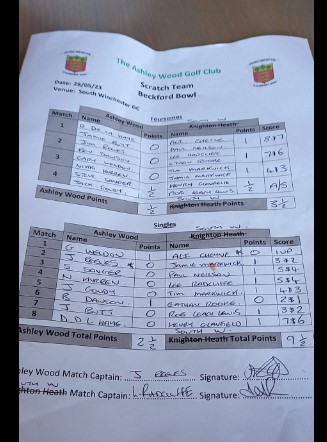 The Ashley Wood Golf Club
Scratch Team
Beckford Bowl
Date: 28/05/23
Venue: South Winchester GC
Foursomes
Match Ashley Wood South W Knighton Heath
Name Points Name Points Score
1 D DE LA HAYE 0 ALF CHEYNE 1 8&7
JAMIE BUTT PAUL NEILSON
2 JON EEGLES 0 LEE RADCLIFFE 1 7&6
BEN DAWSON
3 0 TIM MARKWICK 1 4&3
WARREN JAMIE MARKWICK
4 STEVE SAWYER ½ HENRY ½ A/S
JACK GOUDY ROB
Ashley Wood Points ½ Knighton Heath Points 3½
Singles
Ashley Wood SOUTH W Knighton Heath
Match Name Points Name Points Score
1 G WELDON 1 ALF CHEYNE 0 1UP
2 J EEGLES 0 JAMIE MARKWICK 1 3&2
3 S SAWYER 0 PAUL NEILSON 1 5&4
4 N WARREN 0 LEE RADCLIFFE 1 5&4
5 J GOUDY 0 TIM MARKWICK 1 4&3
6 B DAWSON 1 0 2&1
7 J BUTT 0 ROB 1 3&2
8 D D L HAYE 0 HENRY 1 7&6
Ashley Wood Total Points 2½ SOUTH W Knighton Heath Total Points 9½
Ashley Wood Match Captain: J EEGLES Signature:
SOUTH W
Knighton Heath Match Captain: L RADCLIFFE Signature: